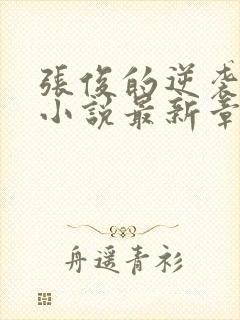 張俊的逆袭
小說最新章
舟遥青衫